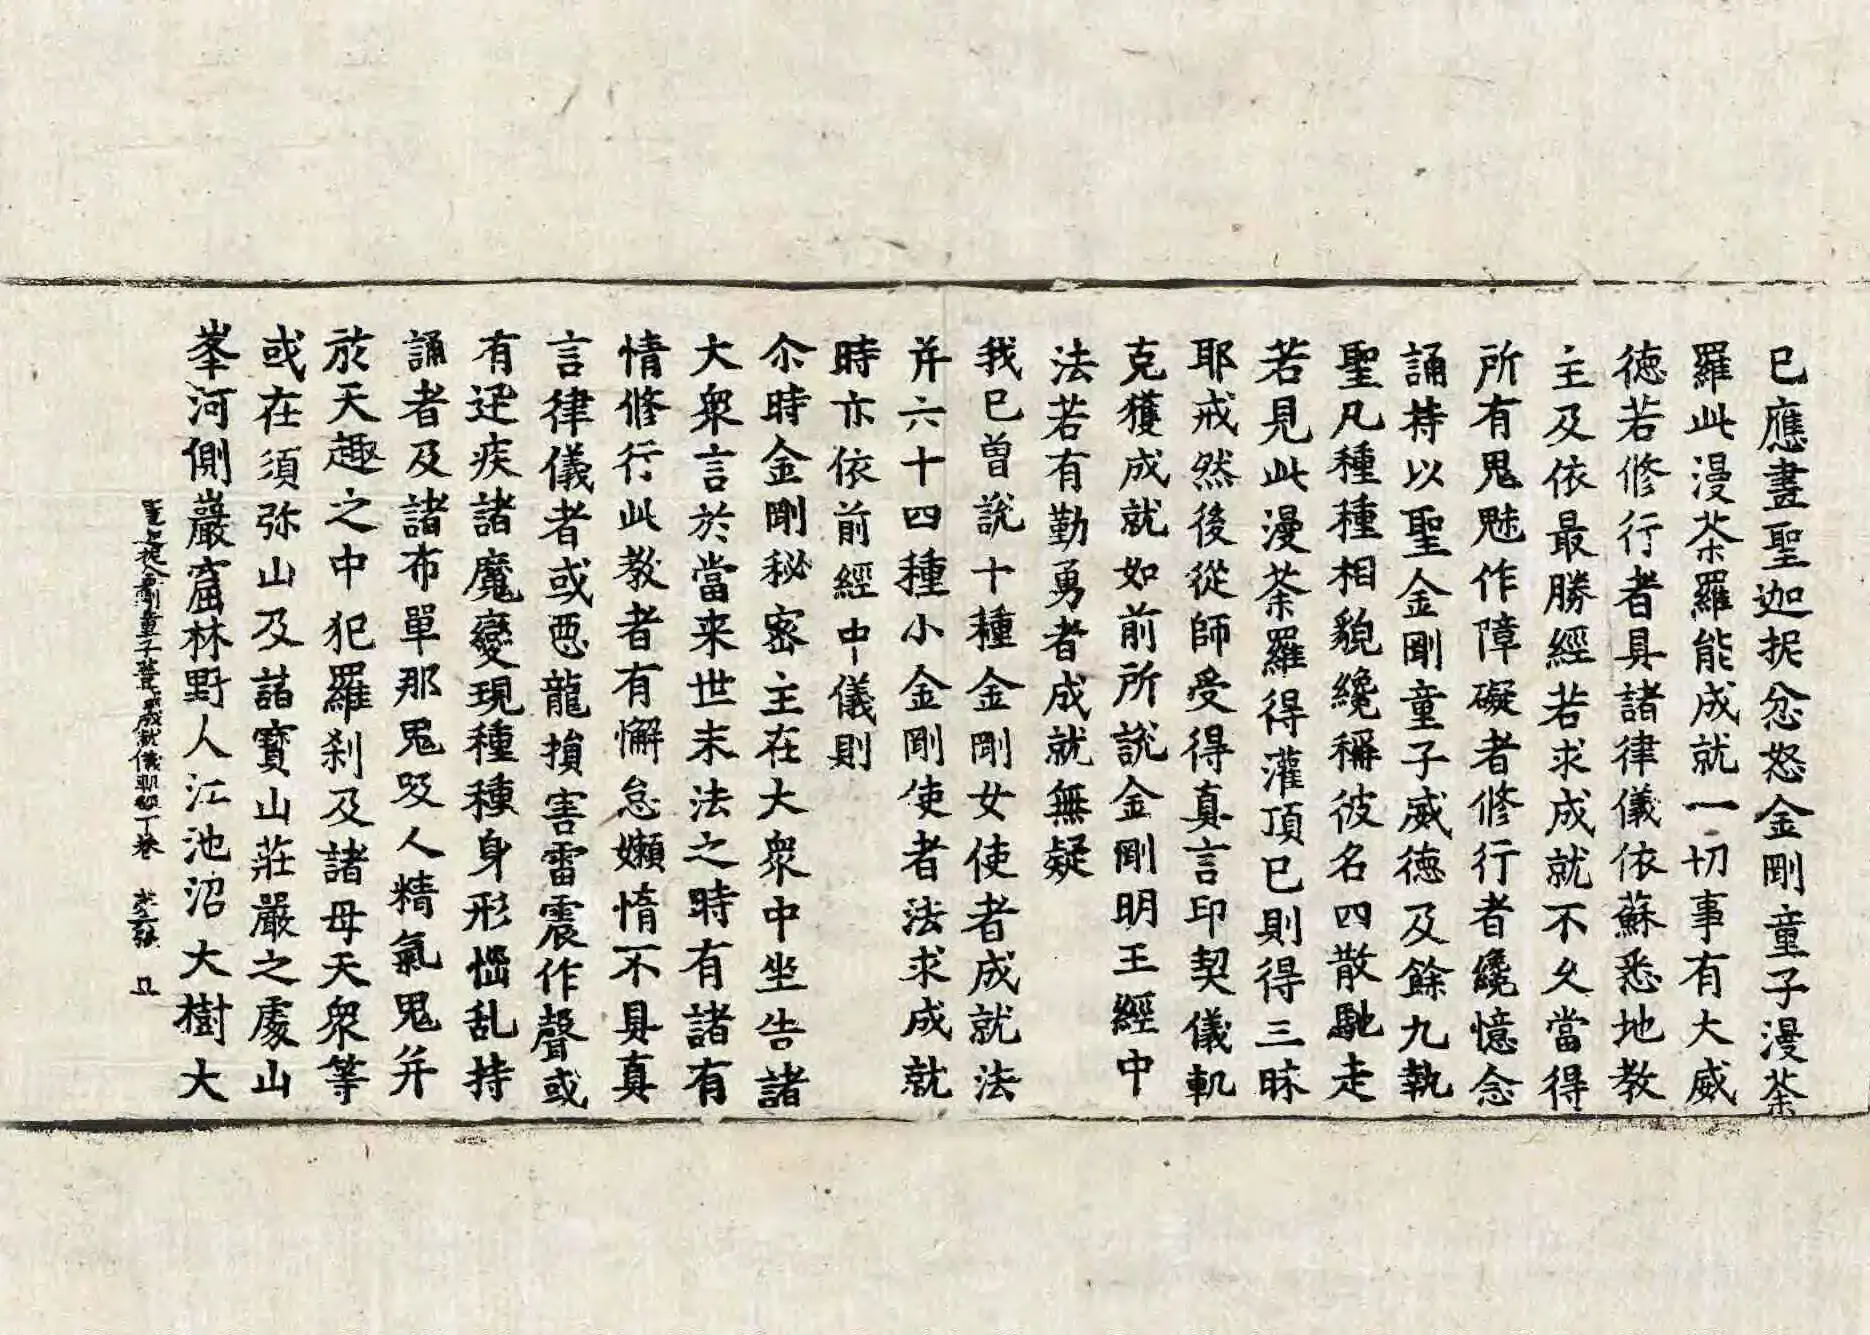 已應畫聖迦抳忿怒金剛童子漫荼
羅此漫荼羅能成就一切事有大威
德若修行者具諸律儀依蘇悉地教
主及依最勝經若求成就不久當得
所有鬼魅作障礙者修行者纔憶念
誦持以聖金剛童子威德及餘九執
聖凡種種相貌纔稱彼名四散馳走
若見此漫荼羅得灌頂已則得三昧
耶戒然後從師受得真言印契儀軌
克獲成就如前所說金剛明王經中
法若有勤勇者成就無疑
我已曾說十種金剛女使者成就法
并六十四種小金剛使者法求成就
時亦依前經中儀則
尒時金剛秘密主在大衆中坐告諸
大衆言於當来世末法之時有諸有
情修行此教者有懈怠嬾惰不具真
言律儀者或惡龍損害雷震作聲或
有迷疾諸魔變現種種身形惱乱持
誦者及諸布單那鬼吸人精氣鬼并
於天趣之中犯羅刹及諸母天衆等
或在須弥山及諸寳山莊嚴之處山
峯河側巖窟林野人江池沼大樹大
金剛童子 成就儀軌經下卷